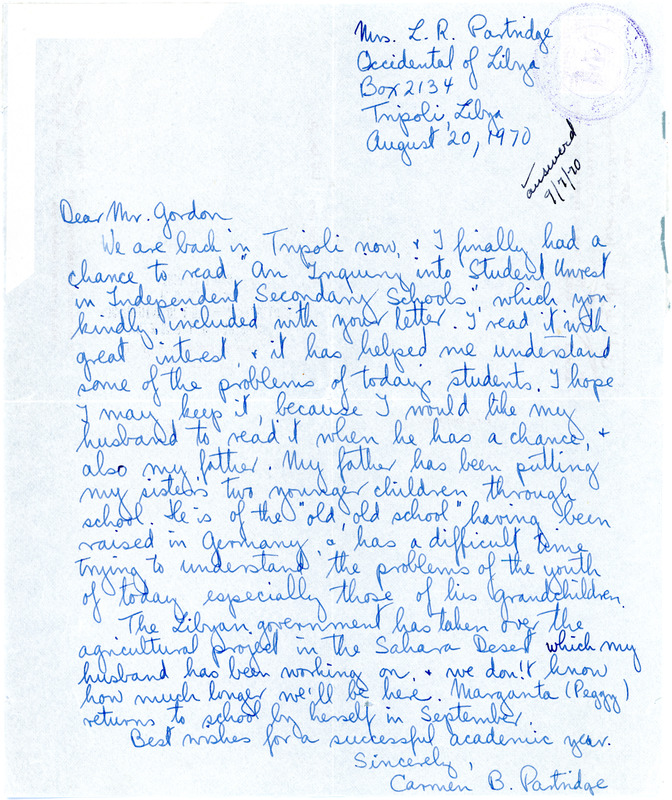 Mrs. L. R. Partridge
Occidental of Libya
Box 2134
Tripoli, Libya
August 20, 1970
answered
9/7/70
Dear Mr. Gordon
We are back in Tripoli now, & I finally had a
chance to read "An Inquiry into Student Unrest
in Independent Secondary Schools" which you
kindly included with your letter. I read it with
great interest, & it has helped me understand
some of the problems of todays students. I hope
I may keep it, because I would like my
husband to read it when he has a chance, &
also my father. My father has been putting
my sister's two younger children through
school. He is of the "old, old school" having been
raised in Germany, & has a difficult time
trying to understand the problems of the youth
of today, especially those of his grandchildren.
The Libyan government has taken over the
agricultural project in the Sahara Desert which my
husband has been working on, & we don't know
how much longer we'll be here. Marganta (Peggy)
returns to school by herself in September.
Best wishes for a successful academic year.
Sincerely,
Carmen B. Partridge